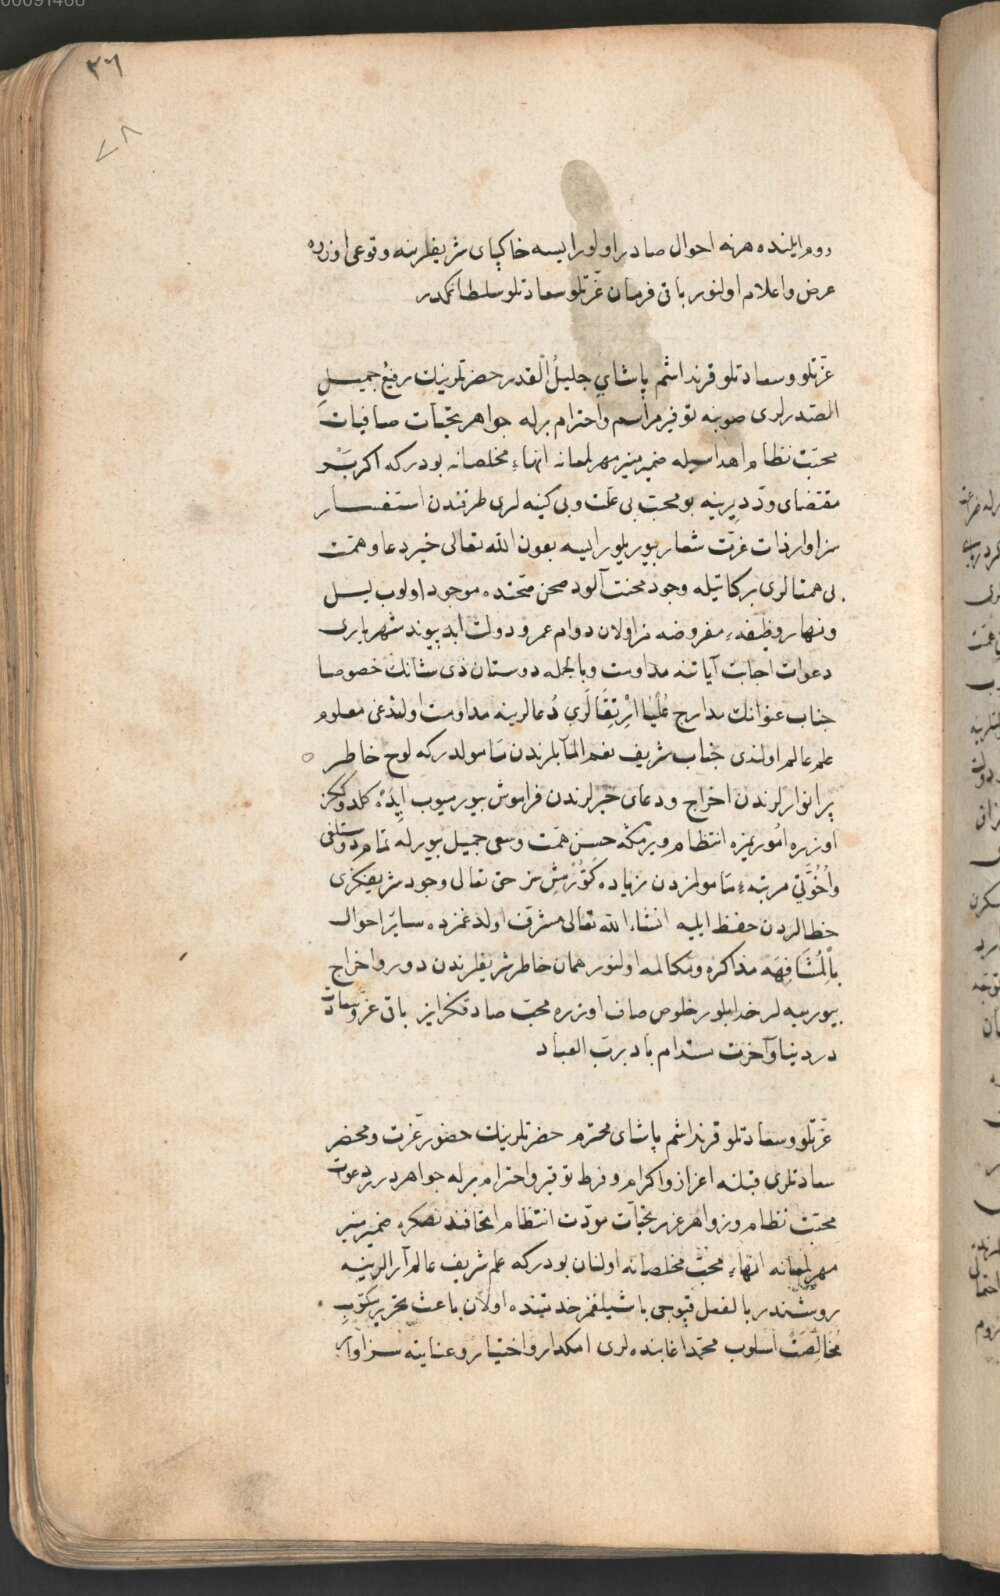 00091488
٢٦
٧٨
روم ايلنده هرنه احوال صادر اولور ايسه خاكپاى شريفلرينه وقوعى اوزره
عرض واعلام اولنور باقى فرمان عزتلو سعادتلو سلطانمكدر
عزّتلو وسعادتلو قرنداشم پاشاي جليلُ الْقدر حضرتلرينك رفيعُ جميلِ
الصّدرلرى صوبنه توقير مراسم واحترام برله جواهر تحيّات صافيات
محبّت نظام اهداسيله ضمير منير مهر لمعانه انهاءِ مخلصانه بودركه اكر بَرْ
مقتضاى ودّ ديرينه بو محبّ بى علّت وبى كينه لرى طرفندن استفسار
سزاوار ذات عزّت شعار بيوريلور ايسه بعون الله تعالى خير دعا وهمّت
بى همتالرى بركاتيله وجود محنت آلود صحن صحّتده موجود اولوب ليل
ونهار وظيفهءِ مفروضه مز اولان دوام عمر ودولت ابد پيوند شهريارى
دعوات اجابت آياتنه مداومت وبالجمله دوستان ذى شانك خصوصا
جناب عنوانك مدارج عُلْيَا اِرْتِقَالَرى دُعالرينه مداومت اولندغى معلوم
علم عالم اولندى جناب شريف نعم المآبلرندن مَامولدركه لوح خاطر
پر انوارلرندن اخراج ودعاى خيرلرندن فراموش بيورميوب
اوزره امُوريمزه انتظام ويرمكه حسن همّت وسعى جميل بيورله تمام دوستلغى
واُخُوَّتى مرتبهءِ مَامولمزدن زياده كَوُرْمِشِز حق تعالى وجود شريفكزى
خطالردن حفظ ايليه انشاء الله تعالى مشرّف اولدغمزده سائر احوال
بِالْمُشَافِهَه مذاكره ومكالمه اولنور همان خاطر شريفلرندن دور واخراج
بيورميه لر خدا بيلور خلوص صاف اوزره محبّ صادقكزايز باقى عزّ وسعادت
در دنيا وآخرت مستدام باد بربّ العباد
عزّتلو وسعادتلو قرنداشم پاشاى محترم حضرتلرينك حضور عزّت ومحضر
سعادتلرى قبلنه اعزاز واكرام وفرط توقير واحترام برله جواهر درر دعوات
محبّت نظام وزواهر غرر تحيّات مودّت انتظام اتحافندنصكره ضمير منير
مهر لمعانه انهاءِ محبّ مخلصانه اولنان بودركه علم شريف عالم آرالرينه
روشندر بالفعل قپوجى باشيلغم خدمتنده اولان باعث تحرير مكتوبِ
مُخَالَصَتْ اسلوب محمّد اغا بنده لرى امكدار واختيار وعنايته سزاوار